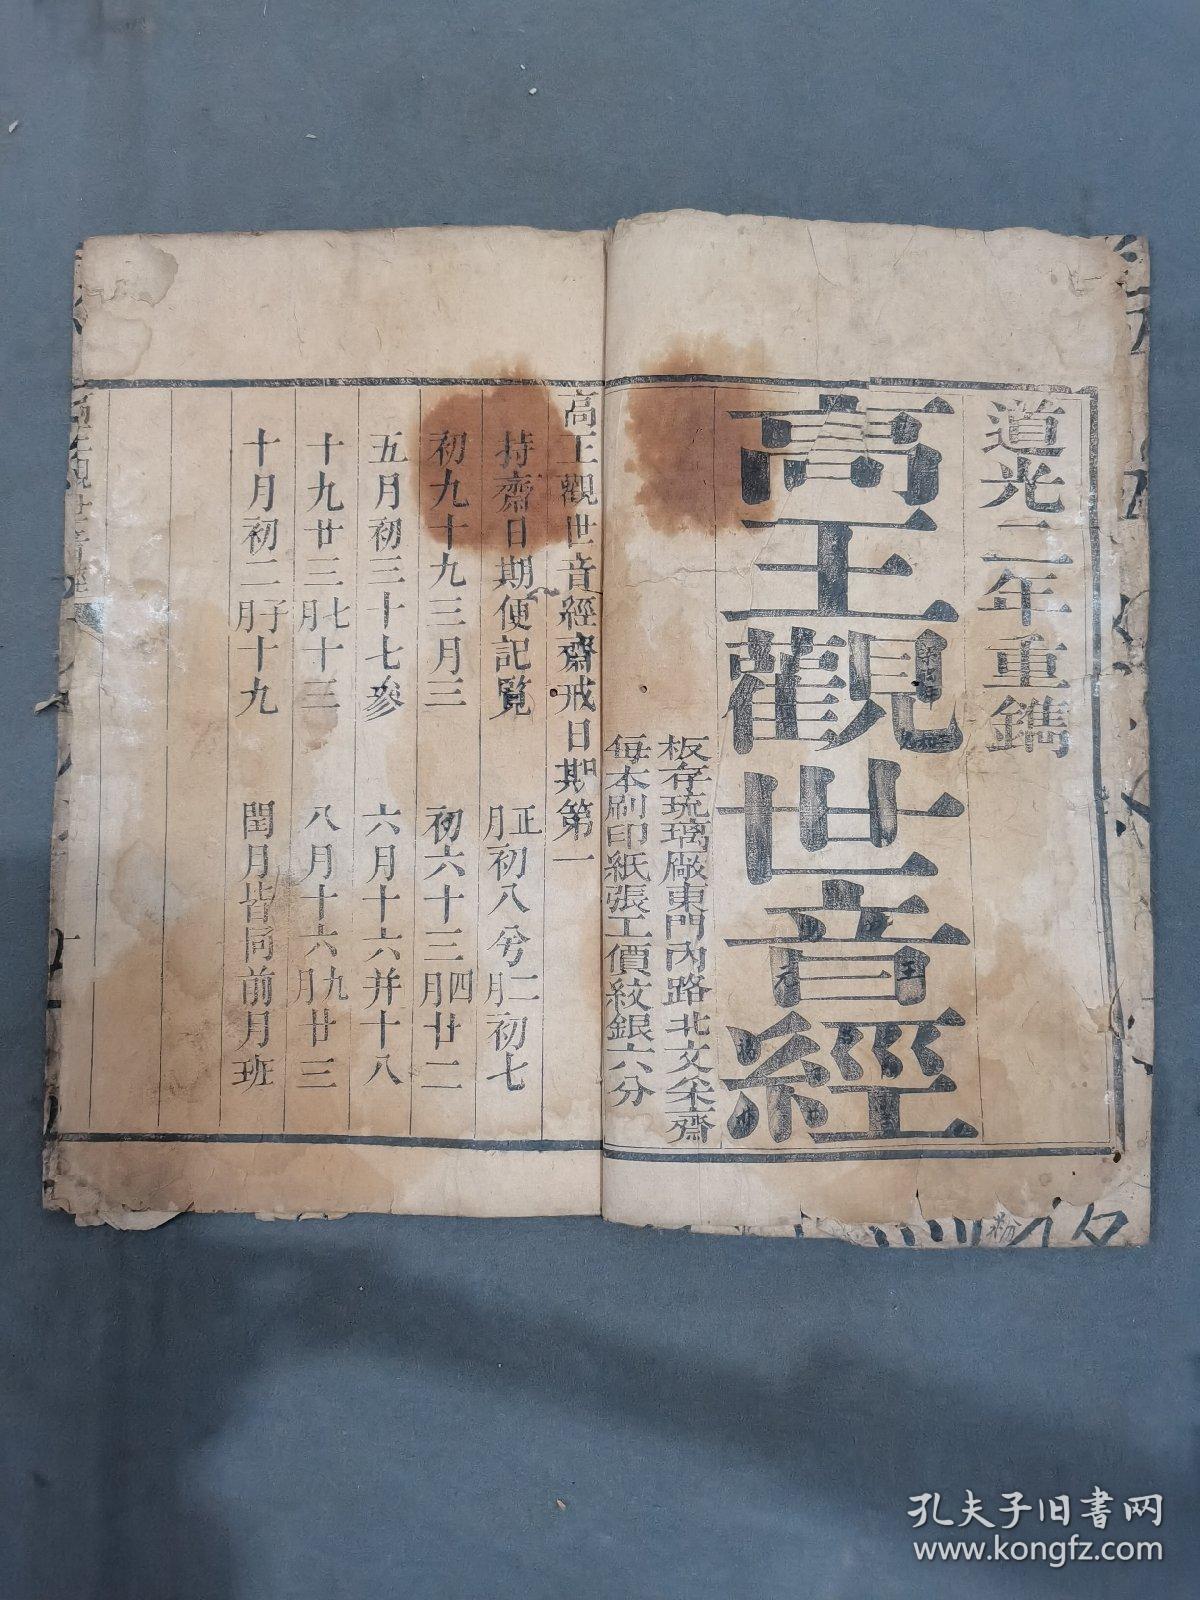 道光二年重鐫
高王觀世音經
板存琉璃廠東門內路北文采齋
每本刷印紙張工價紋銀六分
高王觀世音經齋戒日期第一
持齋日期便記覧 正月初八兮二月初七
初九十九三月三 初六十三四月廿二
五月初三十七參 六月十六并十八
十九廿三七月十三 八月十六九月廿三
十月初二子月十九 閏月皆同前月班
高王觀世音經
孔夫子旧书网
www.kongfz.com